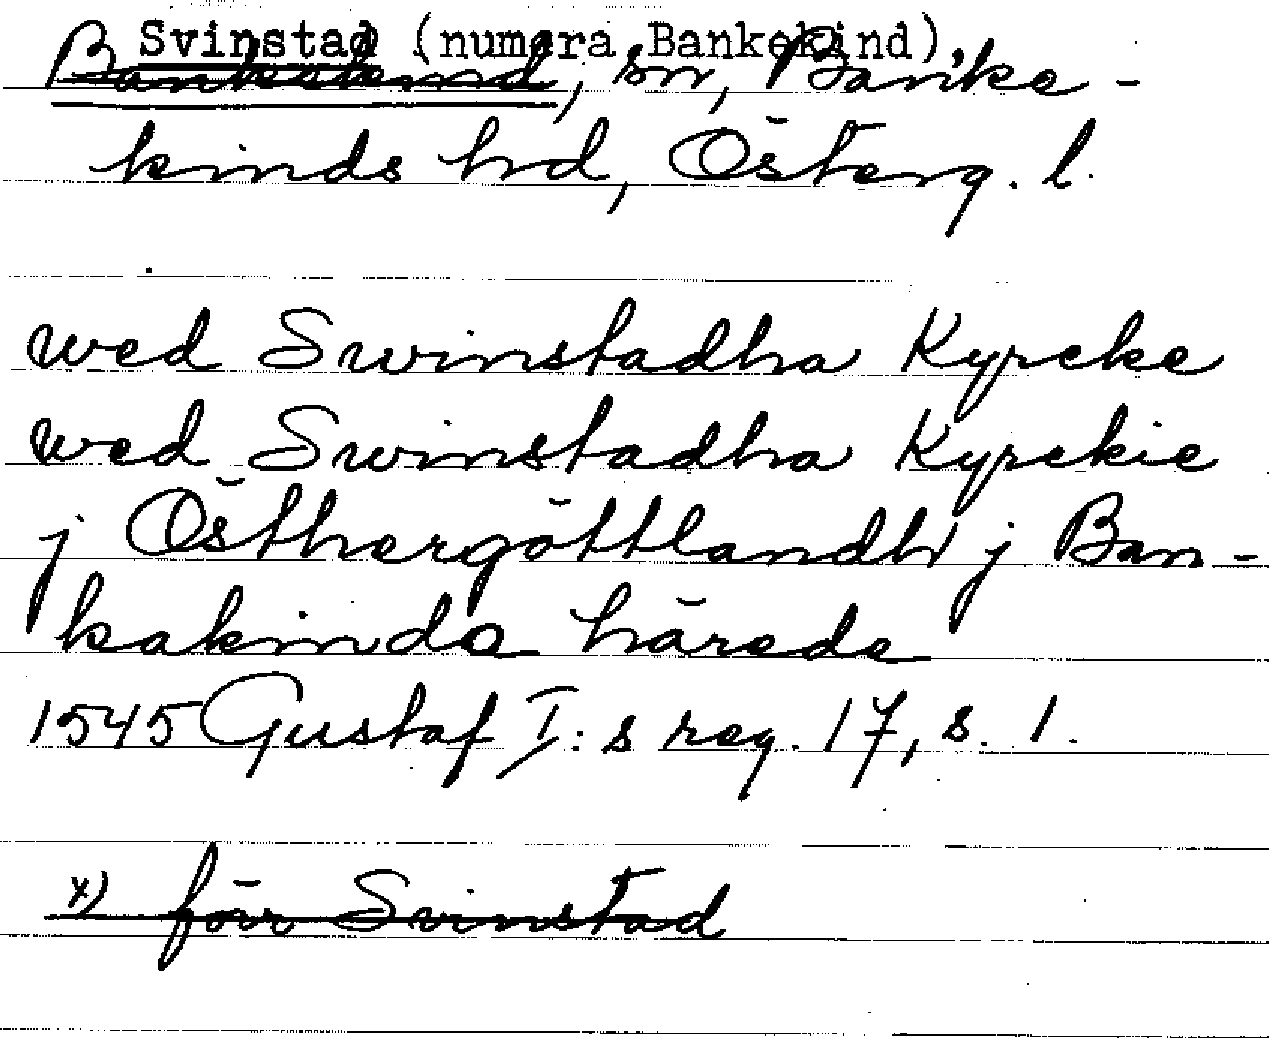 Svinstad (numera Bankekind),
Bankekind, sn, Banke-
kinds hd, Österg. l.
wed Swinstadha Kyrcke
wed Swinstadha Kyrckie
j Östhergöttlandh j Ban-
kakinda härede
1545 Gustaf I:s reg. 17, s. 1.
x) förr Svinstad